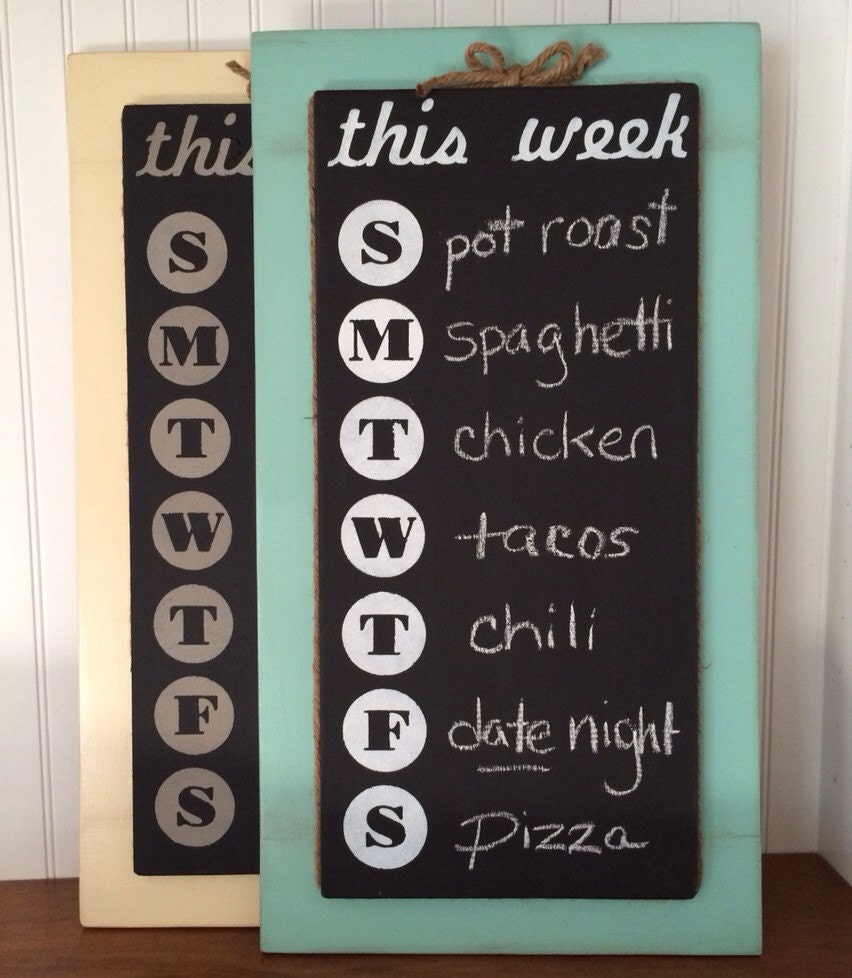 this
S
M
T
W
T
F
S
this week
S pot roast
M spaghetti
T chicken
W tacos
T chili
F date night
S pizza